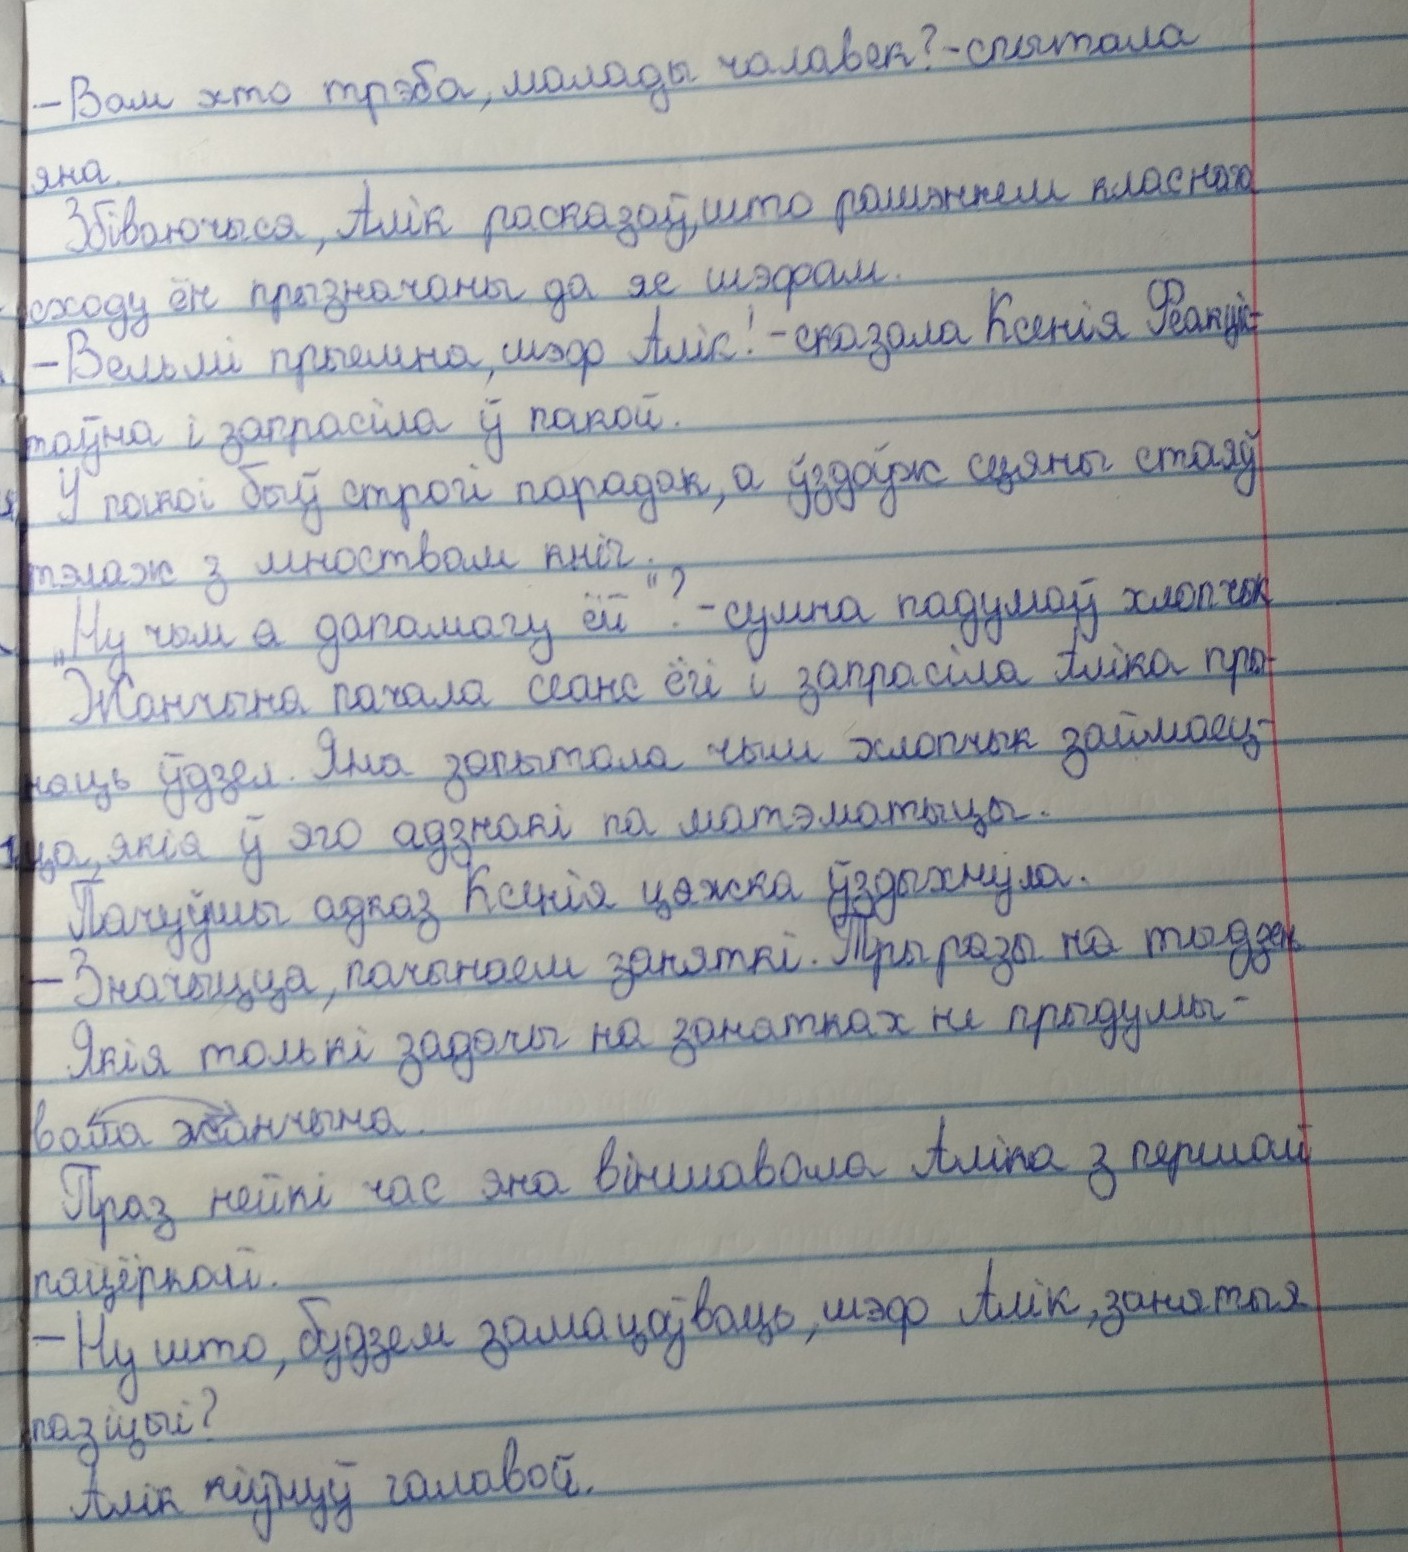 -Вам хто трэба, малады чалавек?-спытала
яна.
Збіваючыся, Алік расказаў, што рашэннем класнага
сходу ён прызначаны да яе шэфам.
-Вельмі прыемна, шэф Алік!-сказала Ксенія Феакціс-
таўна і запрасіла ў пакой.
У пакоі быў строгі парадак, а ўздоўж сцяны стаяў
тэлаж з мноствам кніг.
„Ну чым я дапамагу ёй“?-сумна падумаў хлопчык
Жанчына пачала сеанс ёгі і запрасіла Аліка пры-
наць ўдзел. Яна запытала чым хлопчык займаец-
ца, якія ў яго адзнакі па матэматыцы.
Пачуўшы адказ Ксенія цяжка ўздыхнула.
-Значыцца, пачынаем заняткі. Тры разы на тыдзень
Якія толькі задачы на занятках не прыдумы-
вала жанчына.
Праз нейкі час яна віншавала Аліка з першай
пяцёркай.
-Ну што, будзем замацоўваць, шэф Алік, занятыя
пазіцыі?
Алік кіўнуў галавой.